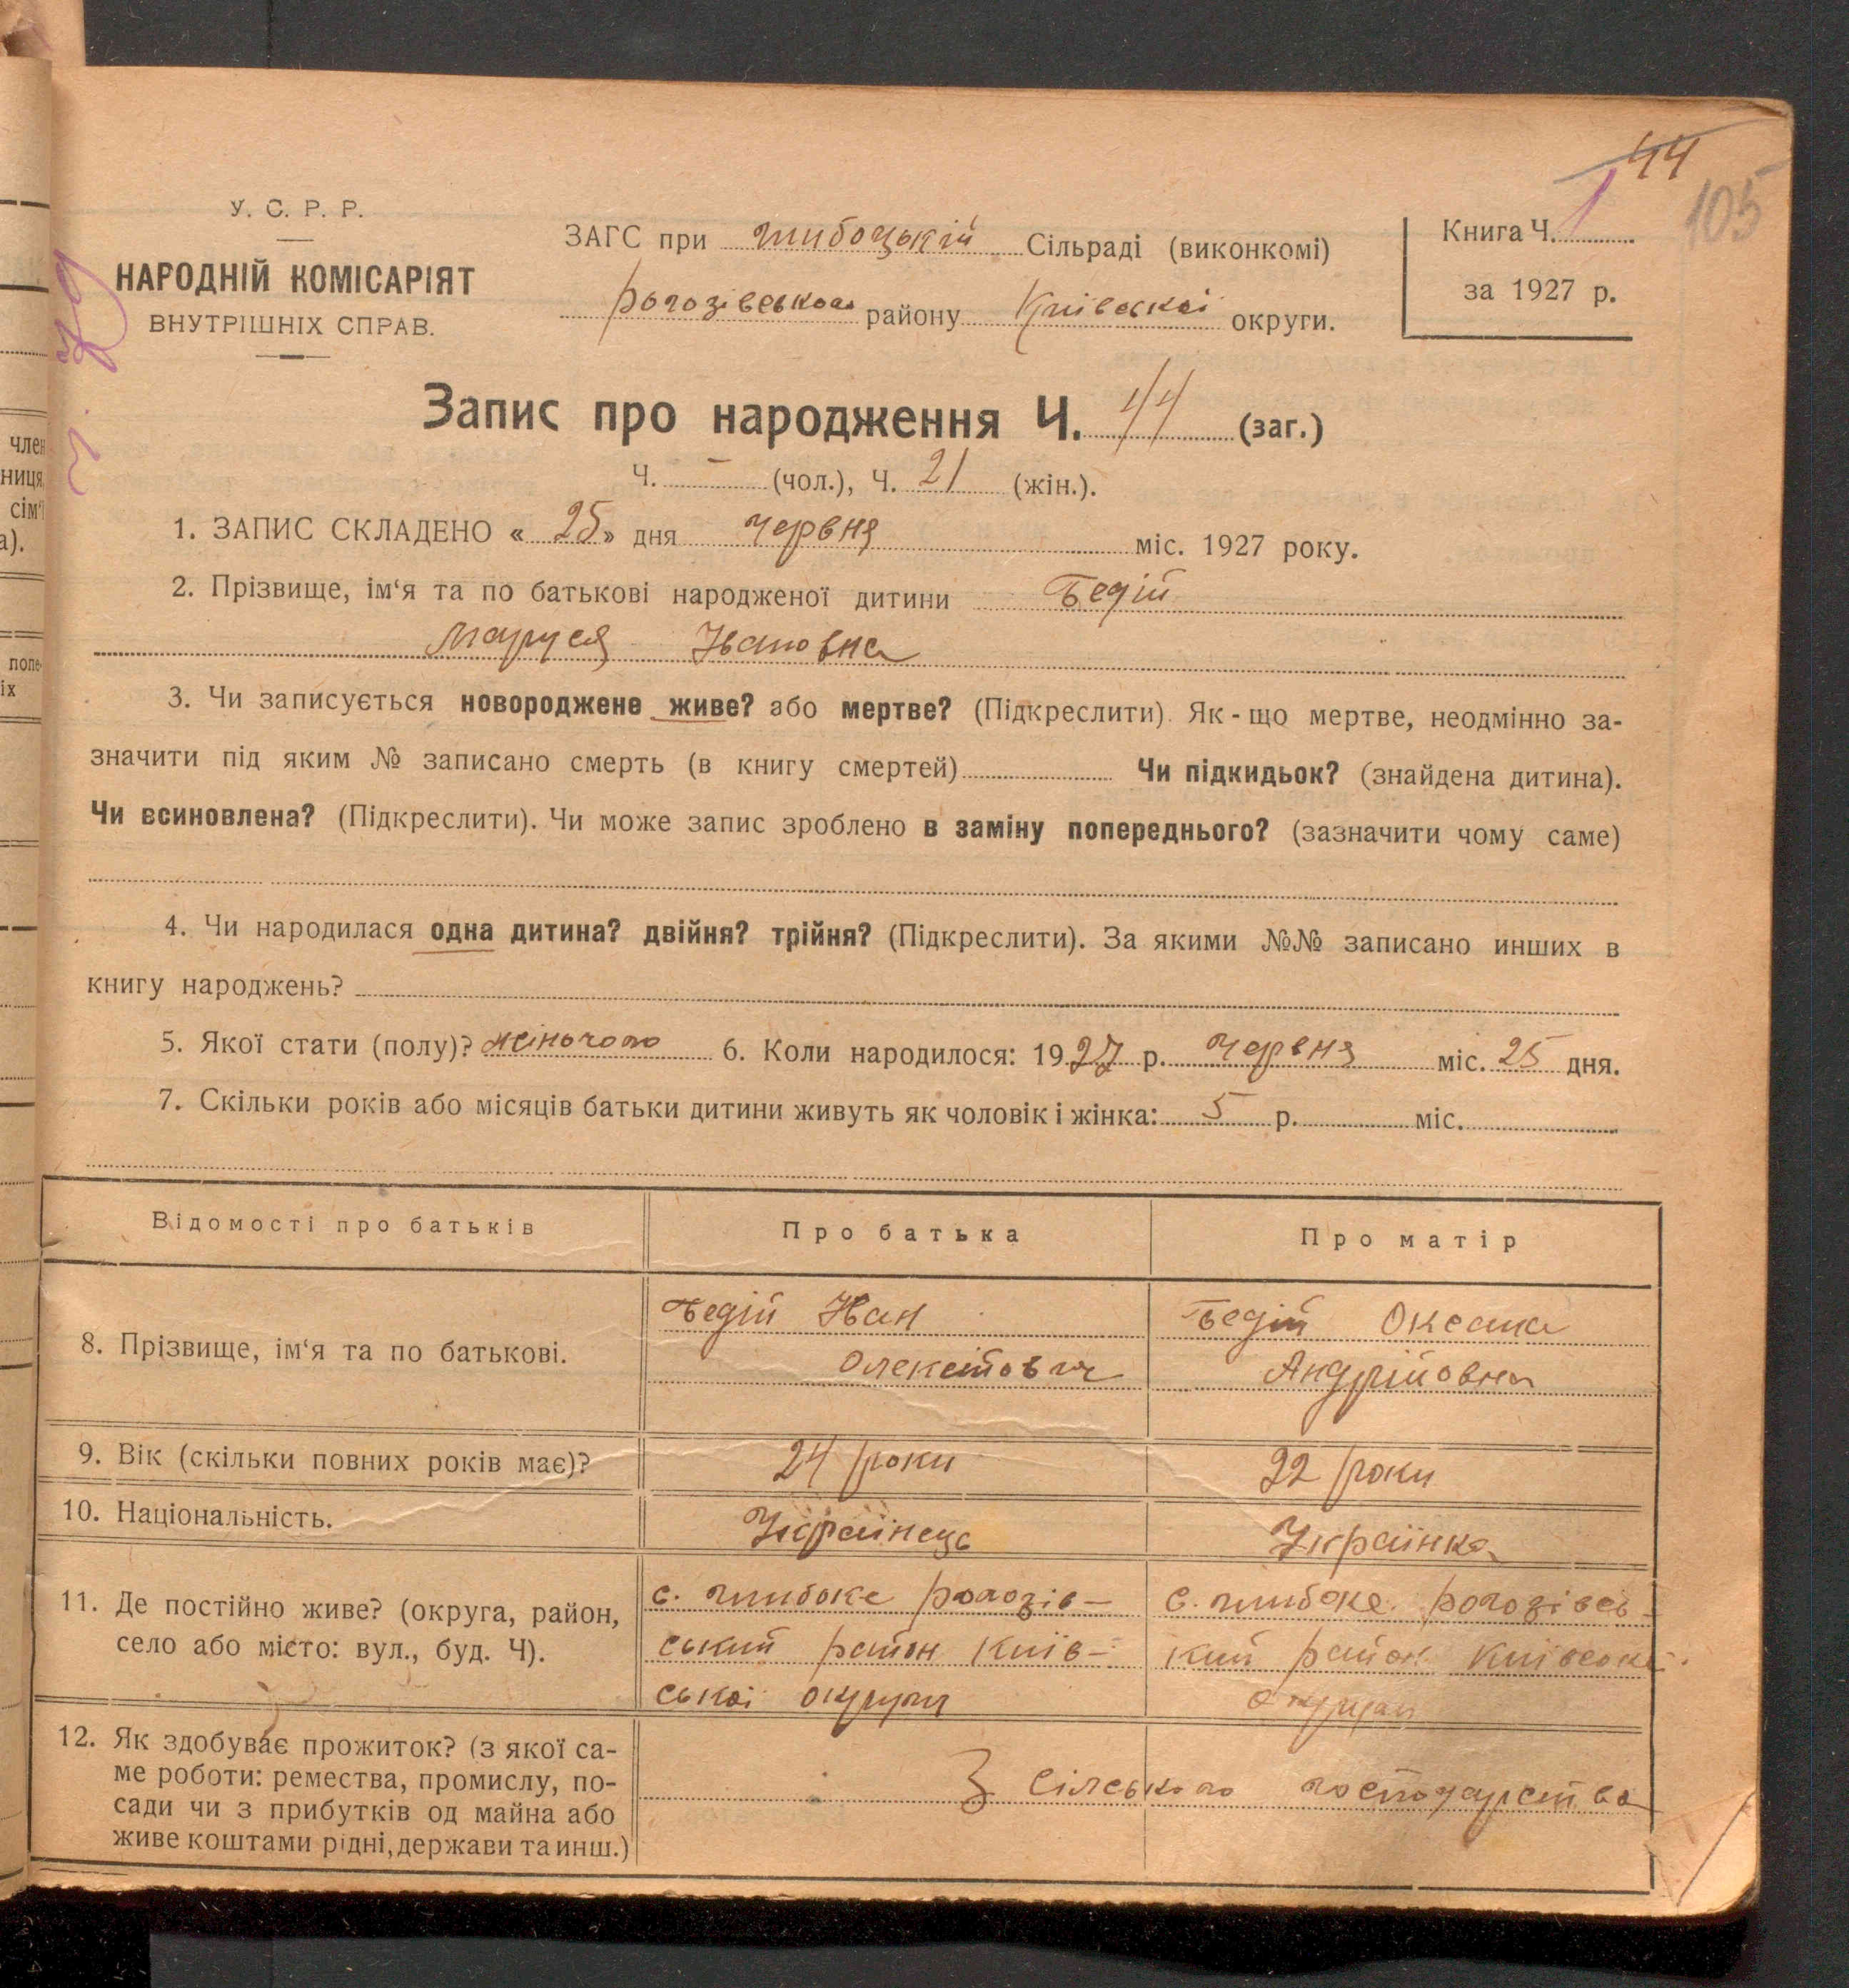 44
105
У. С. Р. Р.
НАРОДНІЙ КОМІСАРІЯТ
ВНУТРІШНІХ СПРАВ.
ЗАГС при глибоцькій Сільраді (виконкомі)
рогозівського району Київської округи.
Книга Ч. 1
за 1927 р.
Запис про народження Ч. 44 (заг.)
Ч. - (чол.), Ч. 21 (жін.).
1. ЗАПИС СКЛАДЕНО « 25 » дня червня міс. 1927 року.
2. Прізвище, ім‘я та по батькові народженої дитини Бедій
Маруся Івановна
3. Чи записується новороджене живе? або мертве? (Підкреслити). Як-що мертве, неодмінно за-
значити під яким № записано смерть (в книгу смертей) Чи підкидьок? (знайдена дитина).
Чи всиновлена? (Підкреслити). Чи може запис зроблено в заміну попереднього? (зазначити чому саме)
4. Чи народилася одна дитина? двійня? трійня? (Підкреслити). За якими №№ записано инших в
книгу народжень?
5. Якої стати (полу)? жіночого 6. Коли народилося: 1927 р. червня міс. 25 дня.
7. Скільки років або місяців батьки дитини живуть як чоловік і жінка: 5 р. міс.
Відомості про батьків Про батька Про матір
8. Прізвище, ім‘я та по батькові.
Бедій Іван
Олексійович
Бедій Оксана
Андрійовна
9. Вік (скільки повних років має)? 24 роки 22 роки
10. Національність. Українець Українка
11. Де постійно живе? (округа, район,
село або місто: вул., буд. Ч).
с. глибоке рогозів-
ський район Київ-
ської округи
с. глибоке рогозівсь-
кий район Київської
округи
12. Як здобуває прожиток? (з якої са-
ме роботи: ремества, промислу, по-
сади чи з прибутків од майна або
живе коштами рідні, держави та инш.)
З сільського господарства
член
ниця
сім'ї
а).
попе-
іх